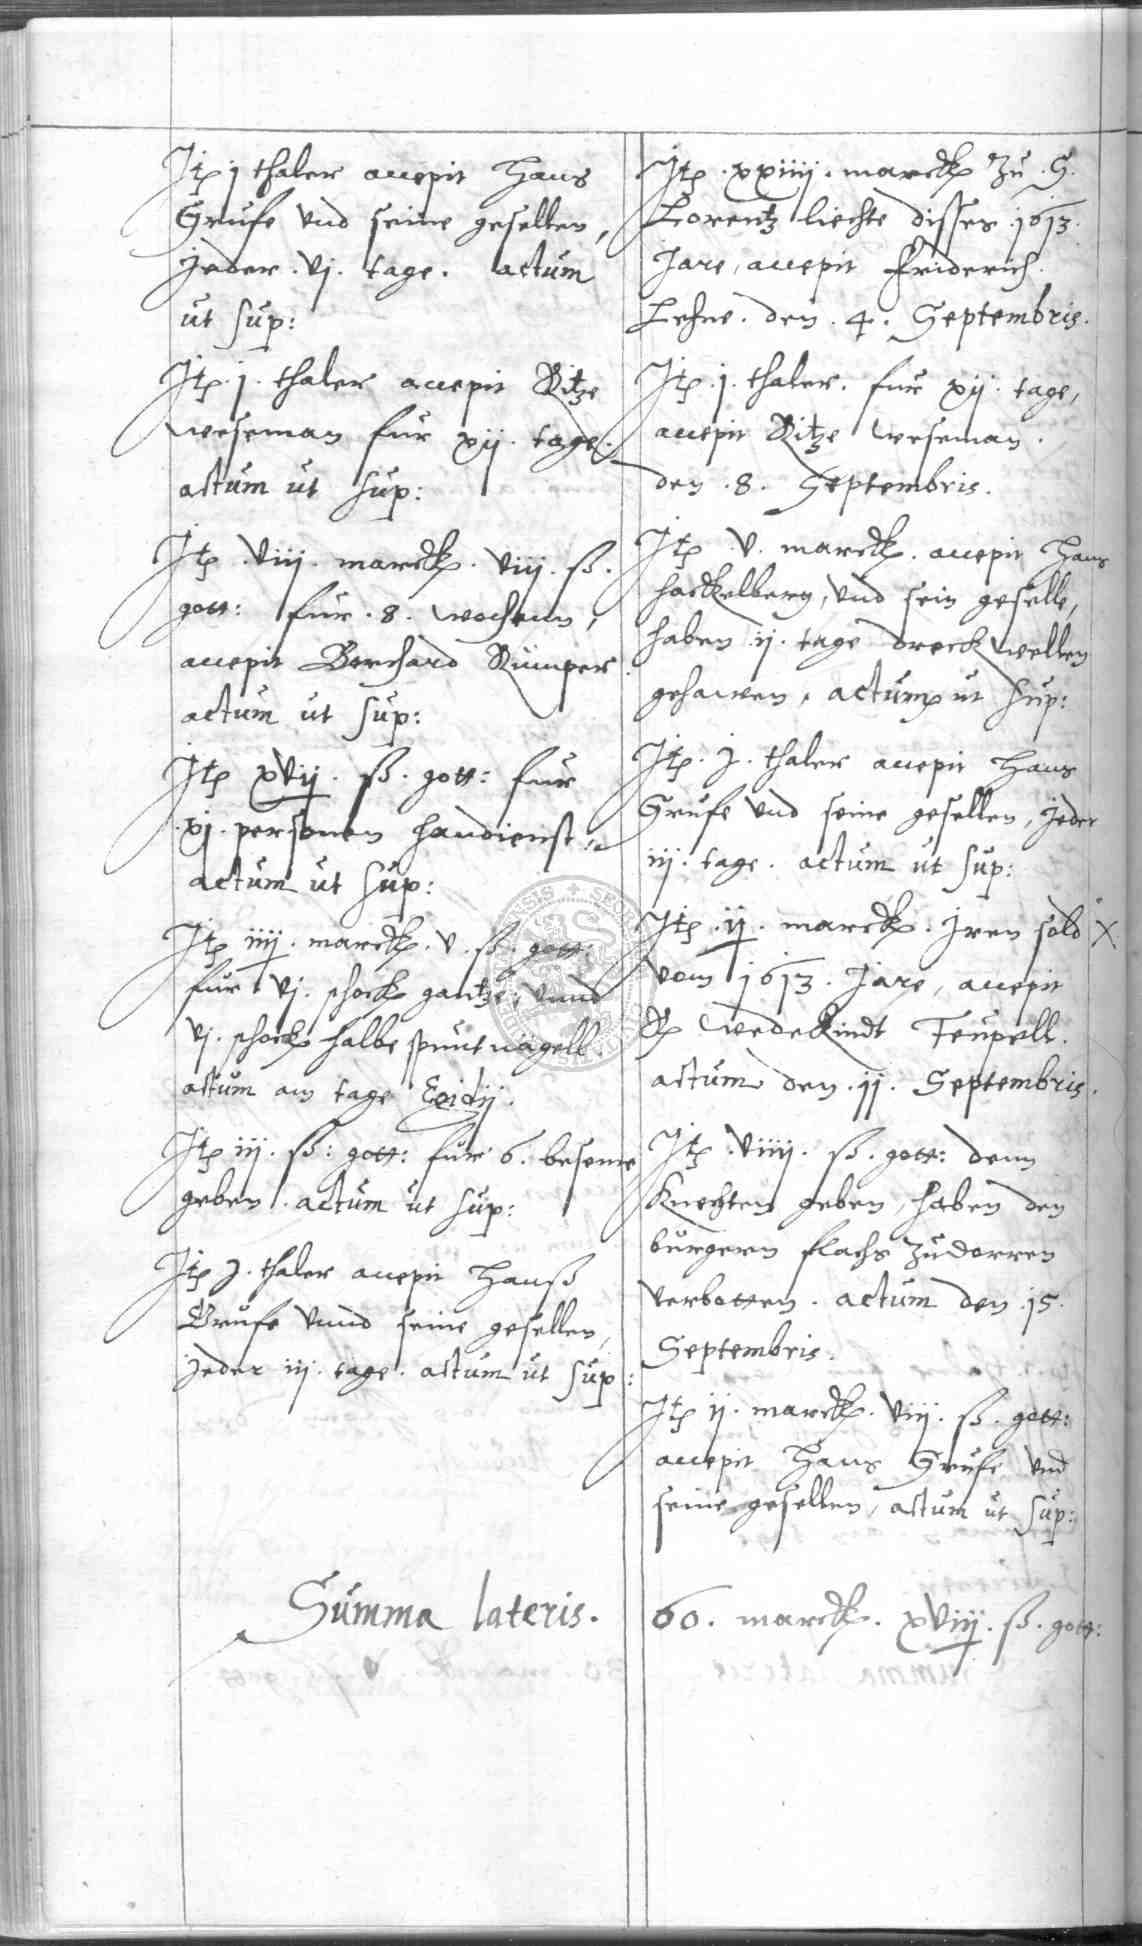 Itp j thaler accepit Hans
Grufe vnd seine gesellen,
jeder . vj . tage . actum
ut sup:
Itp . j . thaler accepit Ritze
weseman fur xij . tage .
actum ut sup:
Itp . viij . marck . viij . ß .
gott: fur . 8 . wochenn,
accepit Borchard Rumper
actum ut sup:
Itp xvij . ß . gott: fur
xj . personen handienst .
actum ut sup:
Itp iiij . marck . v . ß . gott:
fur vj . schock gantze, vnnd
vj . schock halbe spuntnägell .
actum am tage Egidij .
Itp iij . ß: gott: für 6 . beseme
geben . actum ut sup:
Itp j . thaler accepit Hanß
Grufe vnnd seine gesellen,
jeder iij . tage . actum ut sup:
Itp . xxiiij . marck zu . S .
Lorentz liechte disses . 1613 .
Jare, accepit Friderich
Lehne . den . 4 . Septembris .
Itp . j . thaler . fur xij . tage,
accepit Ritze weseman .
den . 8 . Septembris .
Itp . v . marck . accepit Hans
hackelberg, vnd sein geselle,
haben ij . tage dreck wellen
gehawen, actum ut sup:
Itp . j . thaler accepit Hans
Grufe vnd seine gesellen, jeder
iij . tage . actum ut sup:
Itp . ij . marck . jren sold X
vom 1613 . Jare, accepit
wedekindt Teupell .
actum den . 11 . Septembris .
Itp . viiij . ß . gott: denn
Knechten geben, haben den
burgern flachs zudorren
verbotten . actum den 15 .
Septembris .
Itp ij . marck . viij . ß . gott:
accepit Hans Grufe vnd
seine gesellen, actum ut sup:
Summa lateris . 60 . marck . xviij . ß . gott: